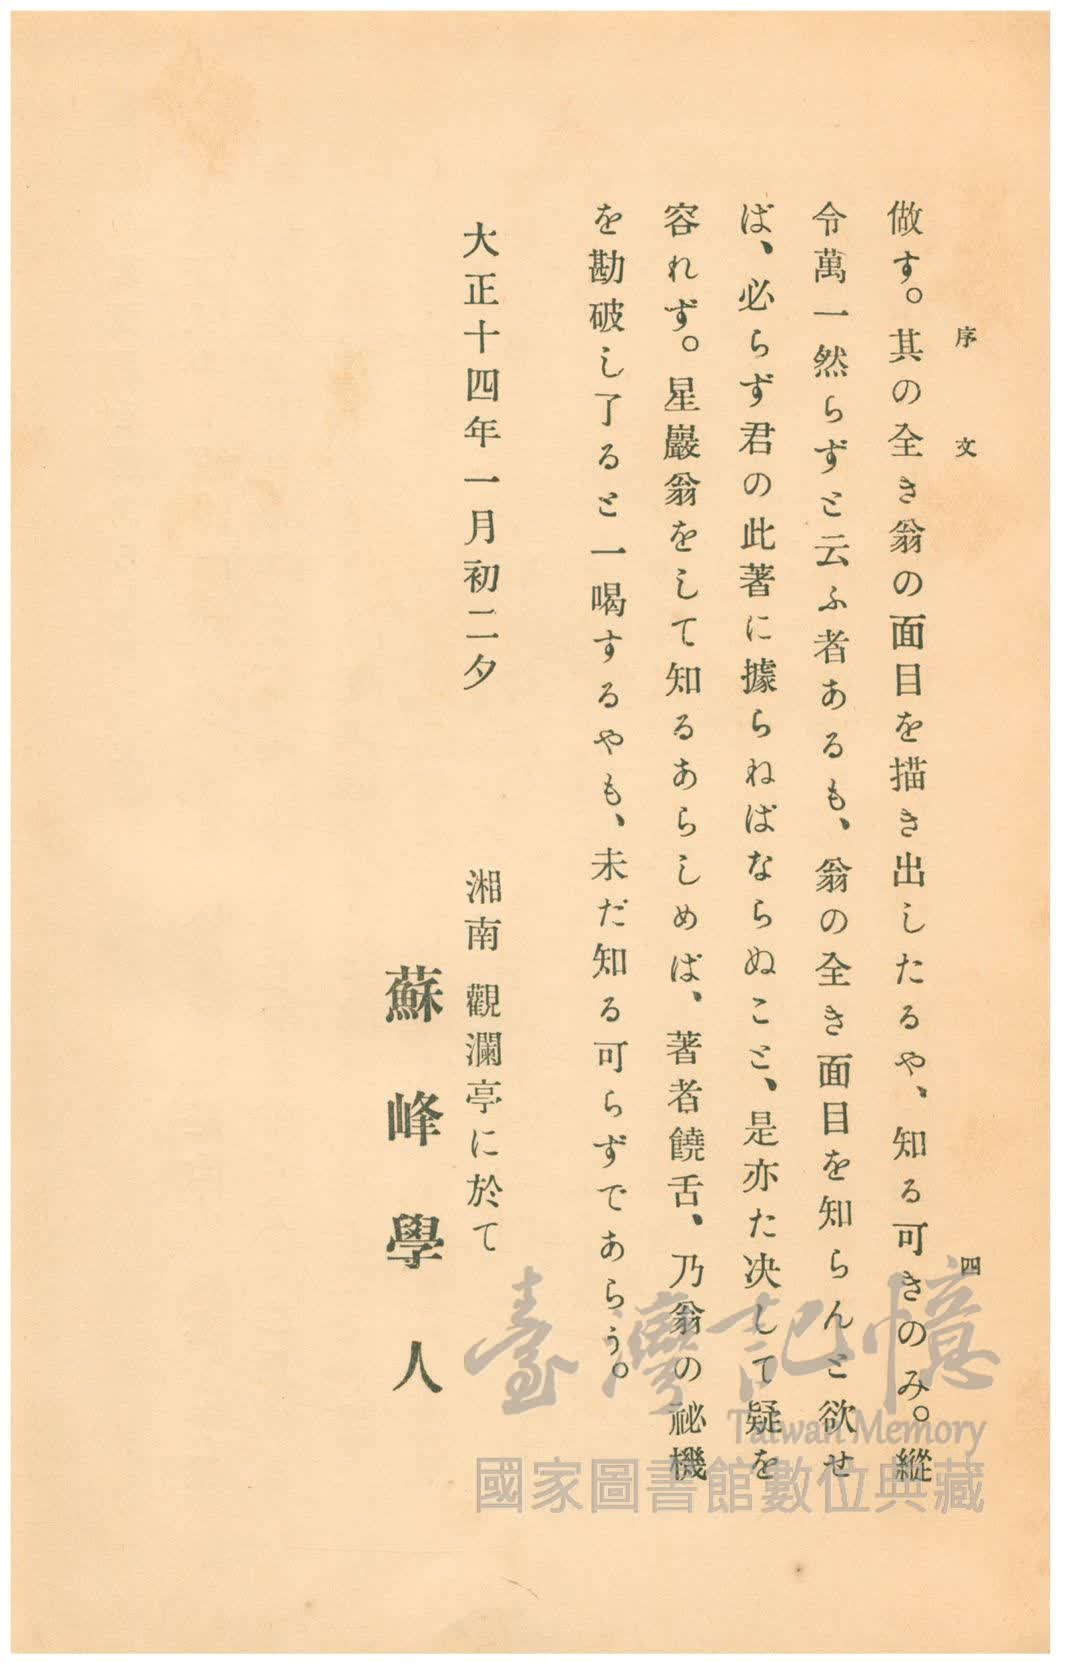 序文
四
做す。其の全き翁の面目を描き出したるや、知る可きのみ。縱
令萬一然らずと云ふ者あるも、翁の全き面目を知らんと欲せ
ば、必らず君の此著に據らねばならぬこと、是亦た决して疑を
容れず。星巖翁をして知るあらしめば、著者饒舌、乃翁の祕機
を勘破し了ると一喝するやも、未だ知る可らずであらう。
大正十四年一月初二夕
湘南 觀瀾亭に於て
蘇峰學人
臺灣記憶
Taiwan Memory
國家圖書館數位典藏